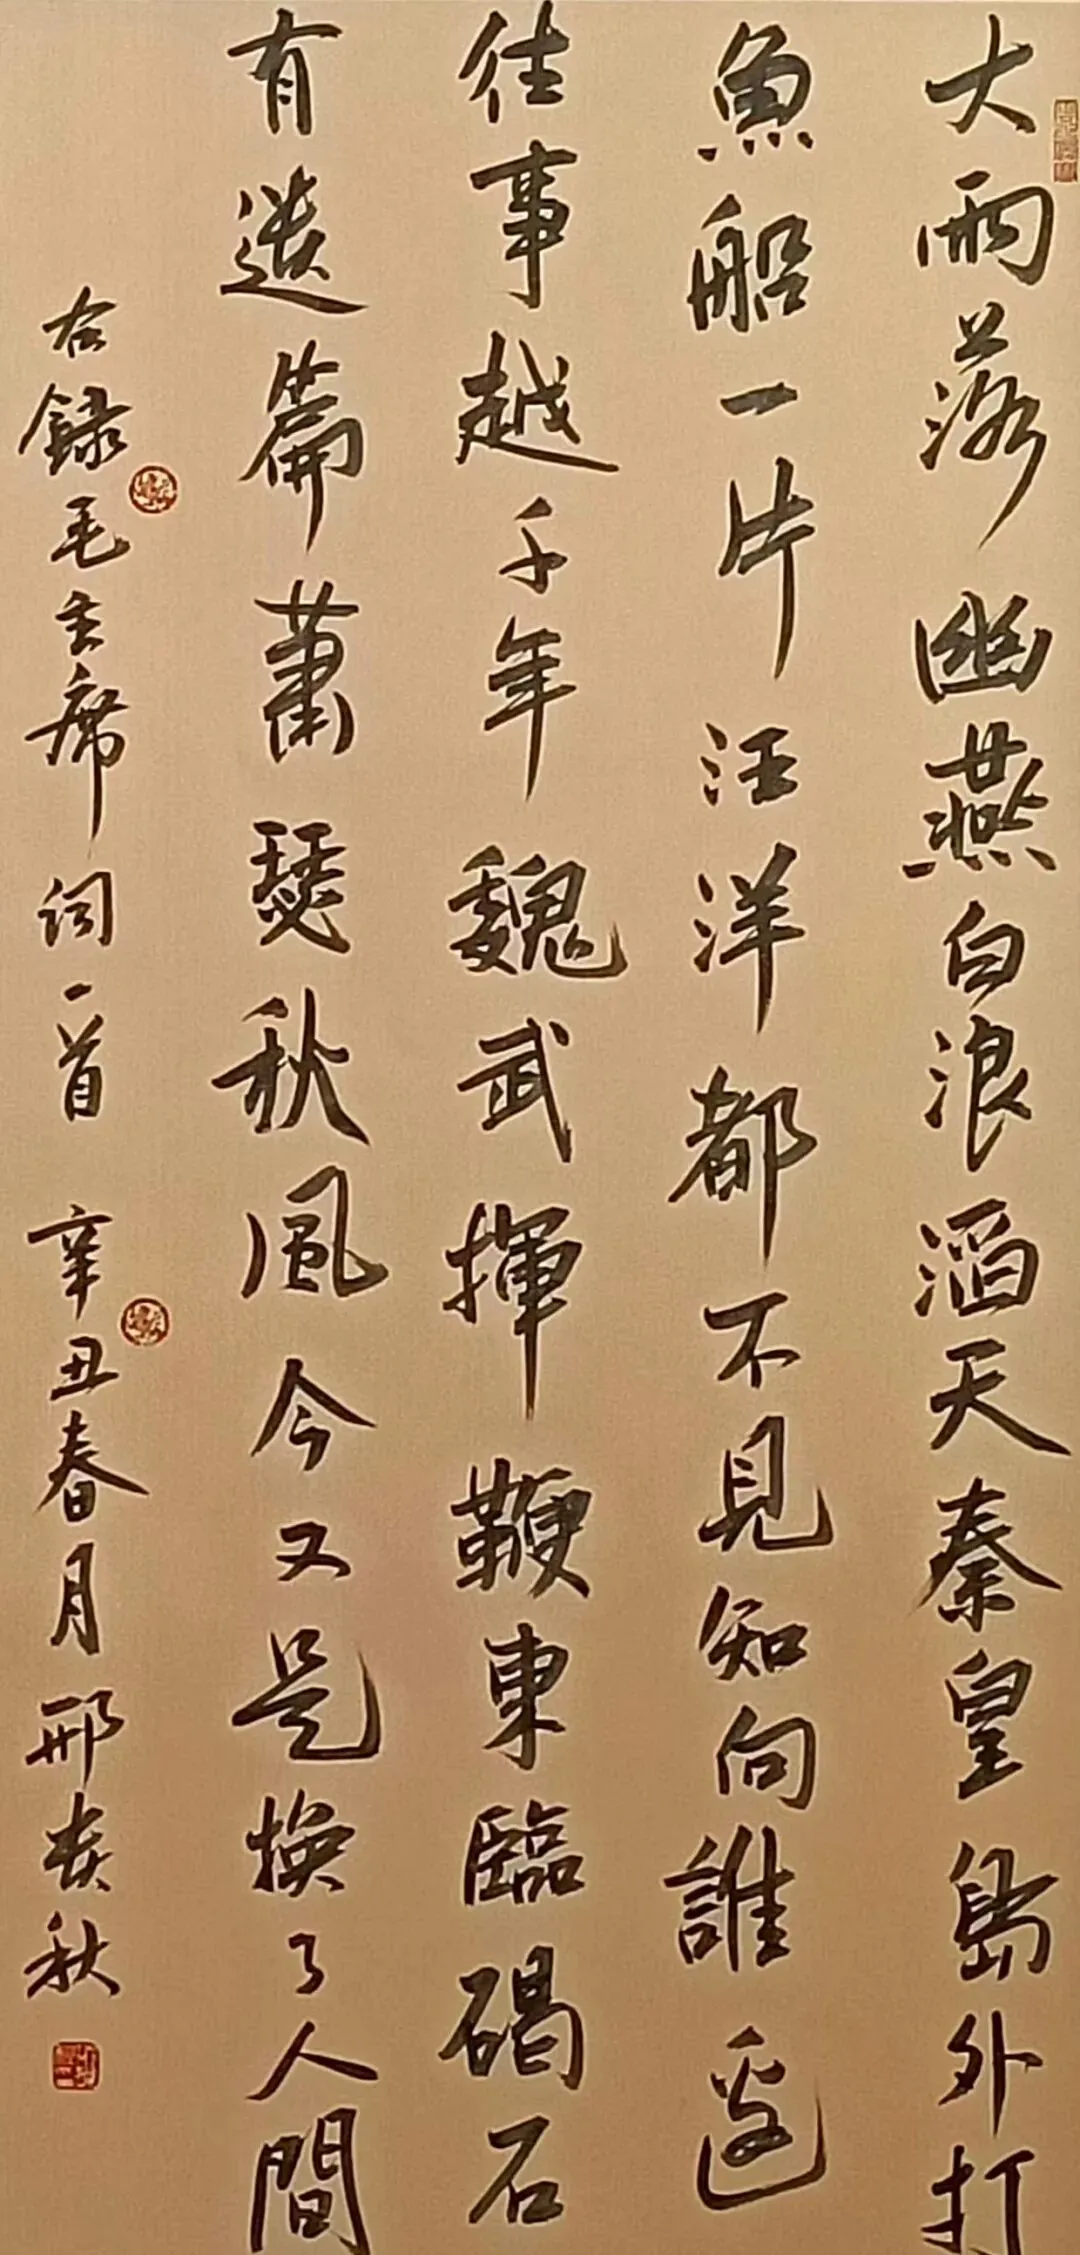 大雨落幽燕白浪滔天秦皇島外打
魚船一片汪洋都不見知向誰邊
往事越千年魏武揮鞭東臨碣石
有遺篇蕭瑟秋風今又是換了人間
右錄毛主席詞一首 辛丑春月邢春秋